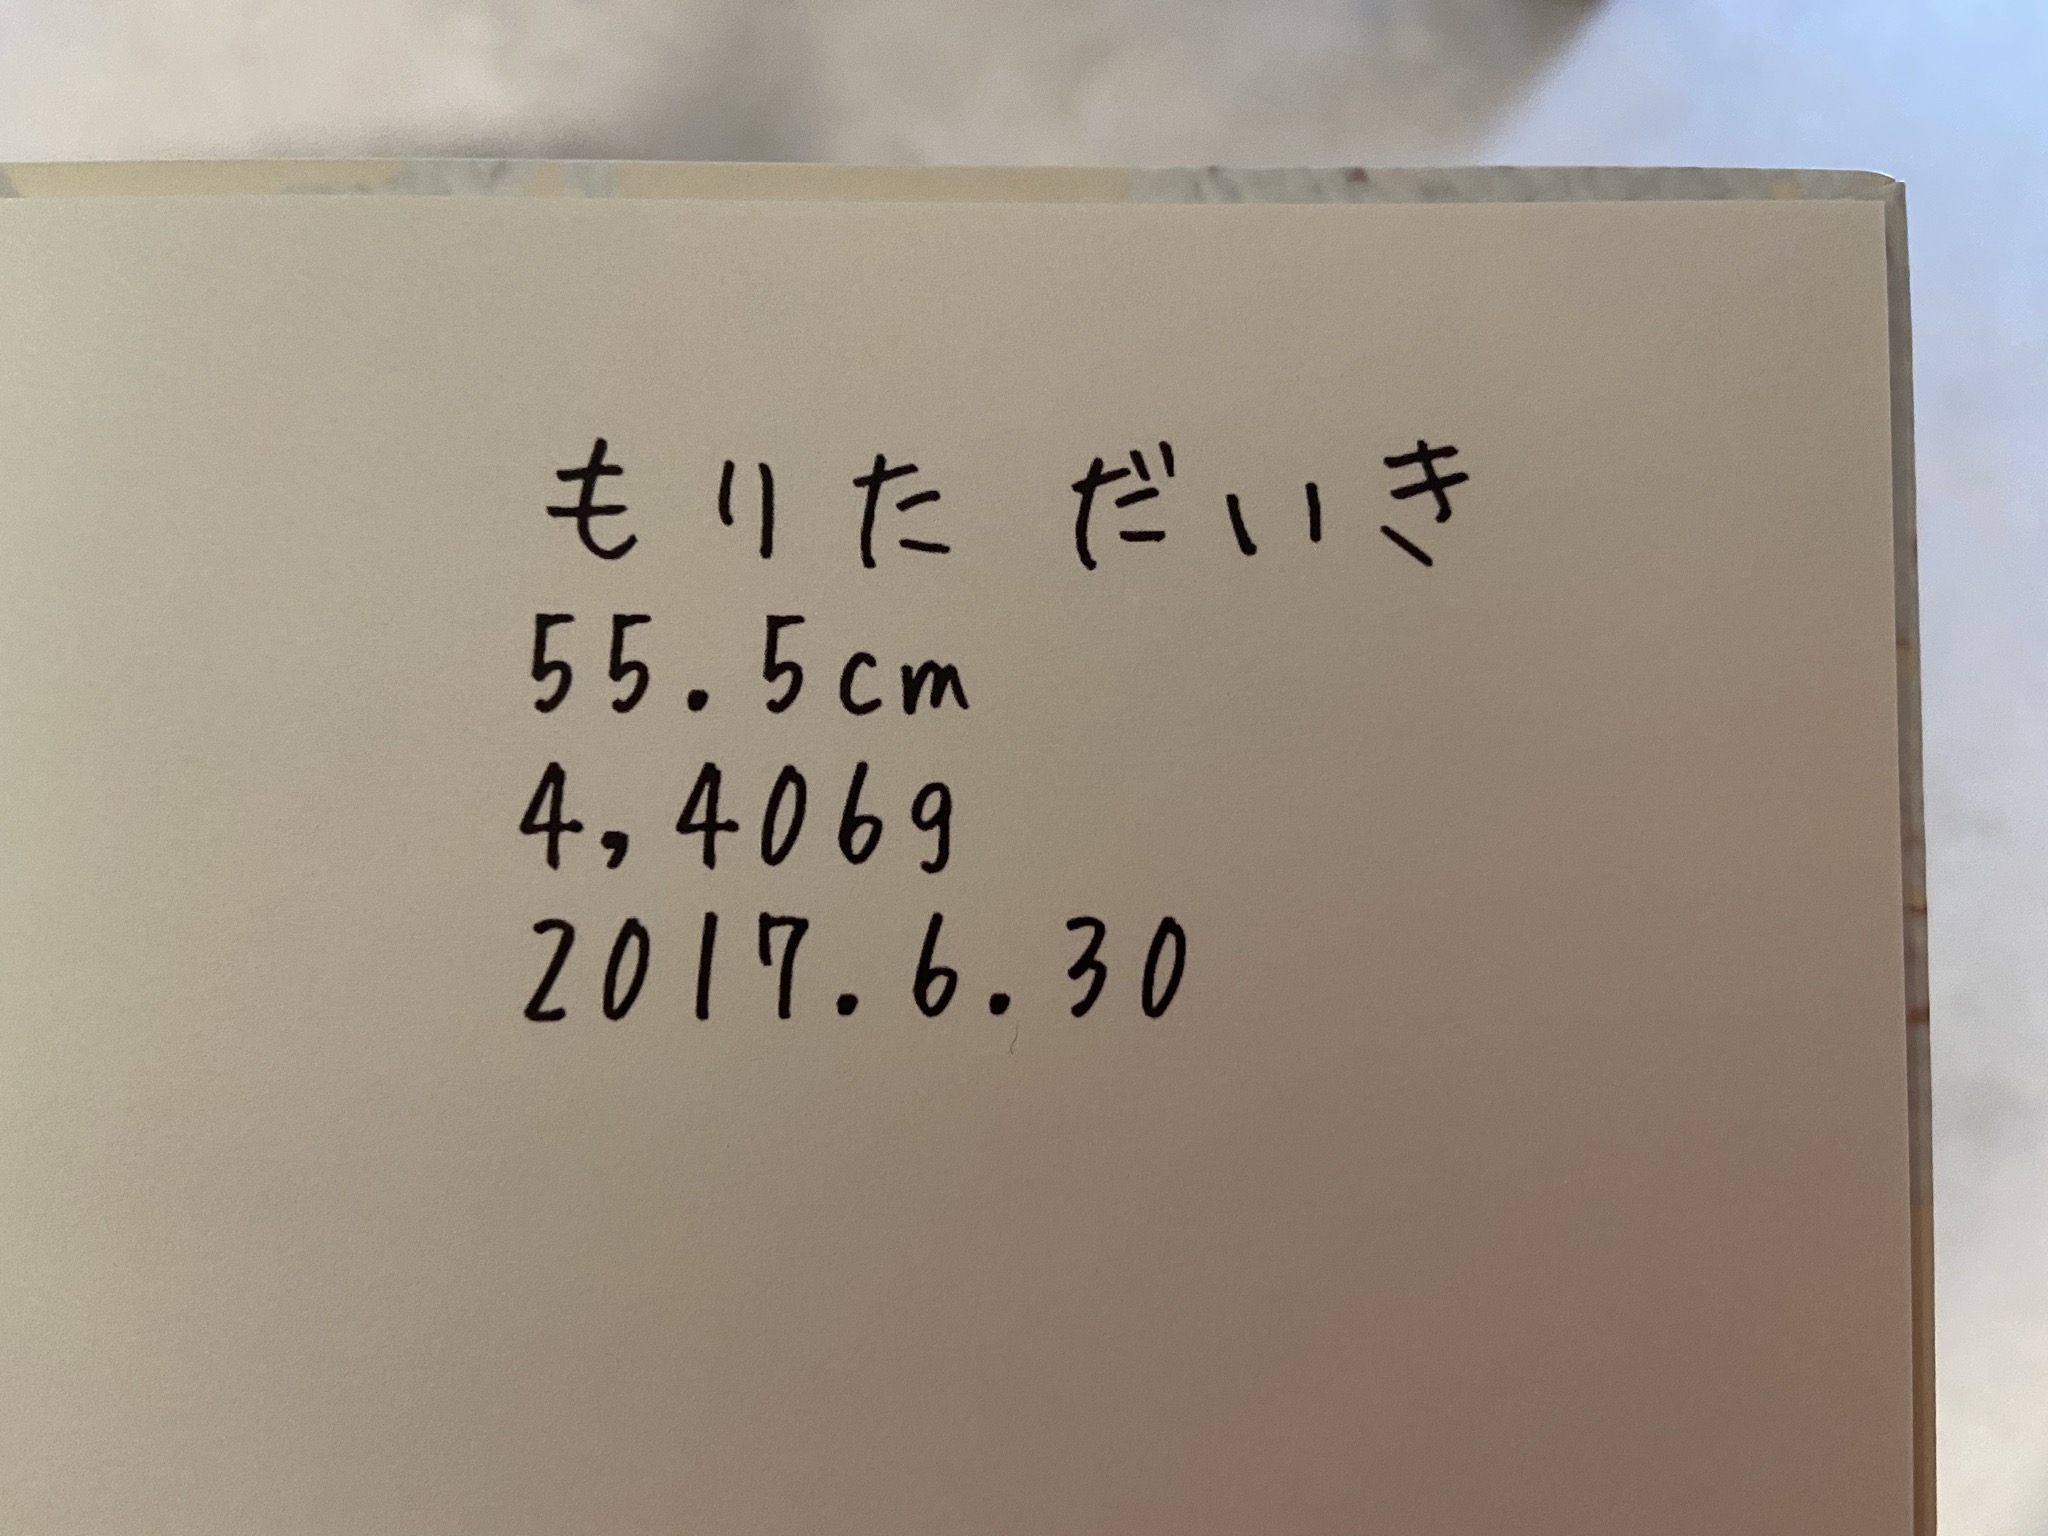 もりた だいき
55.5cm
4,406g
2017.6.30